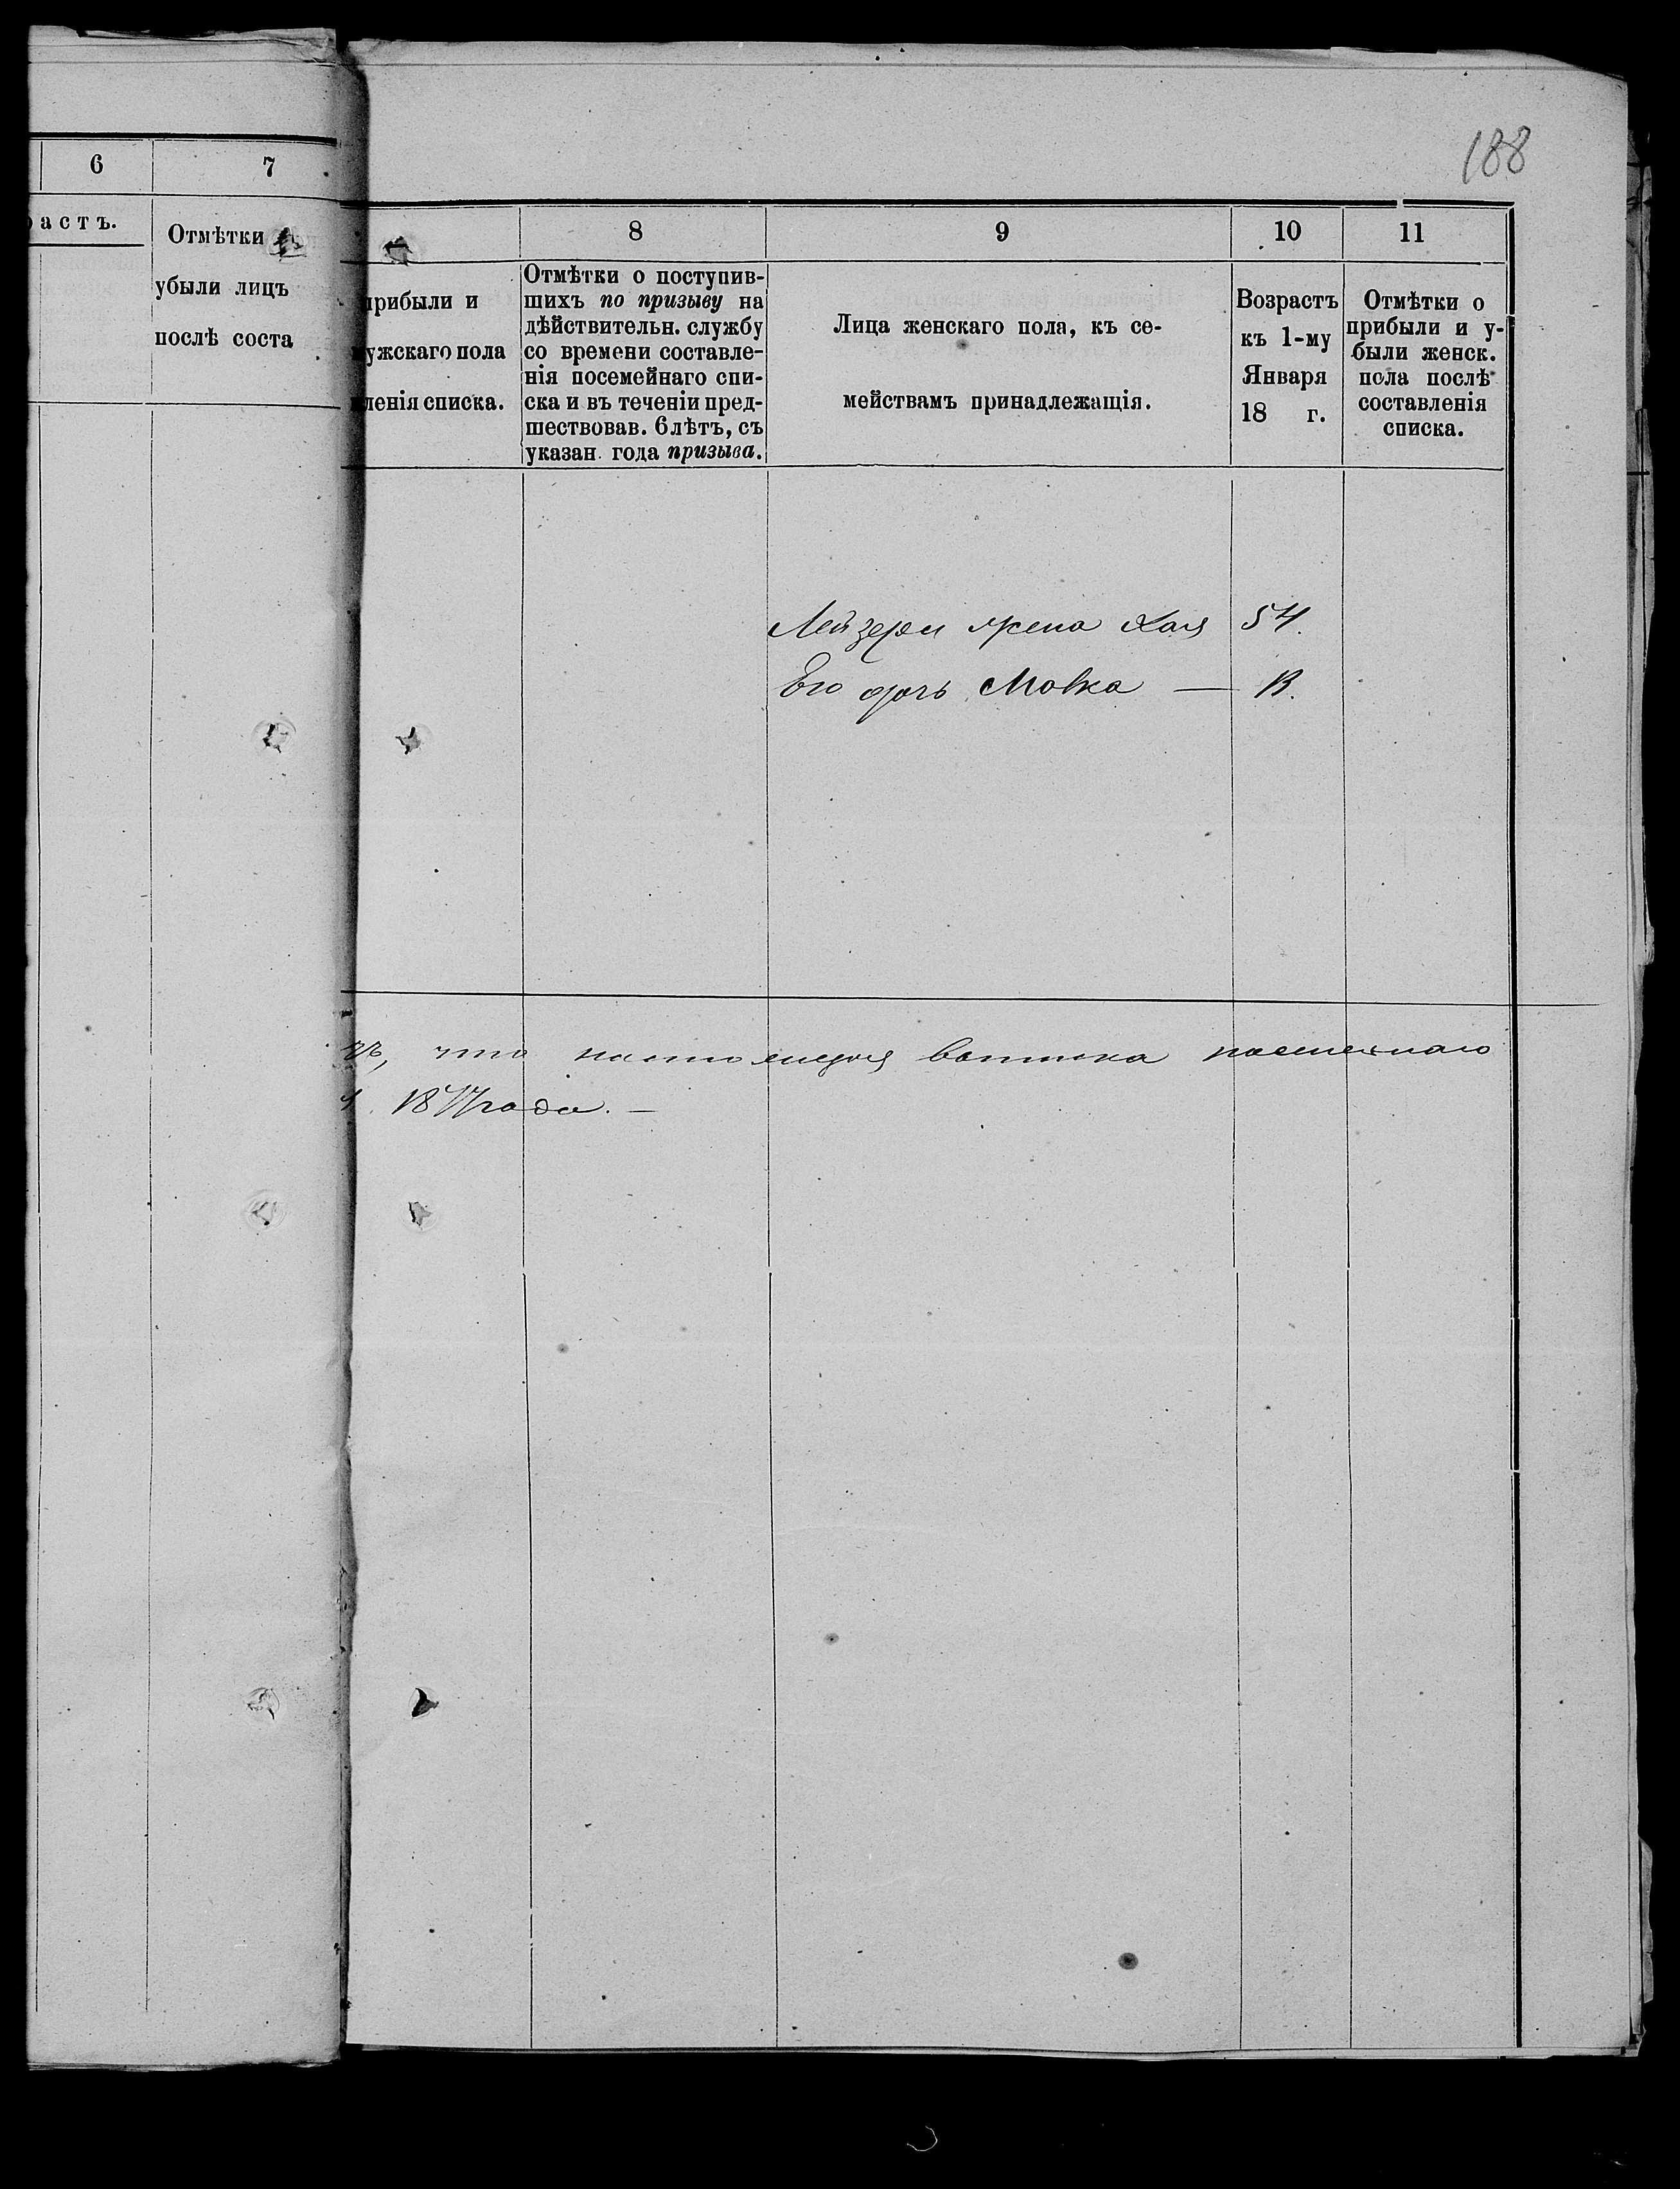 188
6 7
растъ.
Отмѣтки
убыли лицъ
послѣ соста
8 9 10 11
прибыли и
мужскаго пола
вленія списка.
Отмѣтки о поступив-
шихъ по призыву на
дѣйствительн. службу
со времени составле-
нія посемейнаго спи-
ска и въ теченіи пред-
шествовав. 6 лѣтъ, съ
указан. года призыва.
Лица женскаго пола, къ се-
мействамъ принадлежащія.
Возрастъ
къ 1-му
Января
18 г.
Отмѣтки о
прибыли и у-
были женск.
пола послѣ
составленія
списка.
Лейзера жена Хая 54.
Его дочь Мовка —
что настоящая выписка посемейнаго
1877 года. —